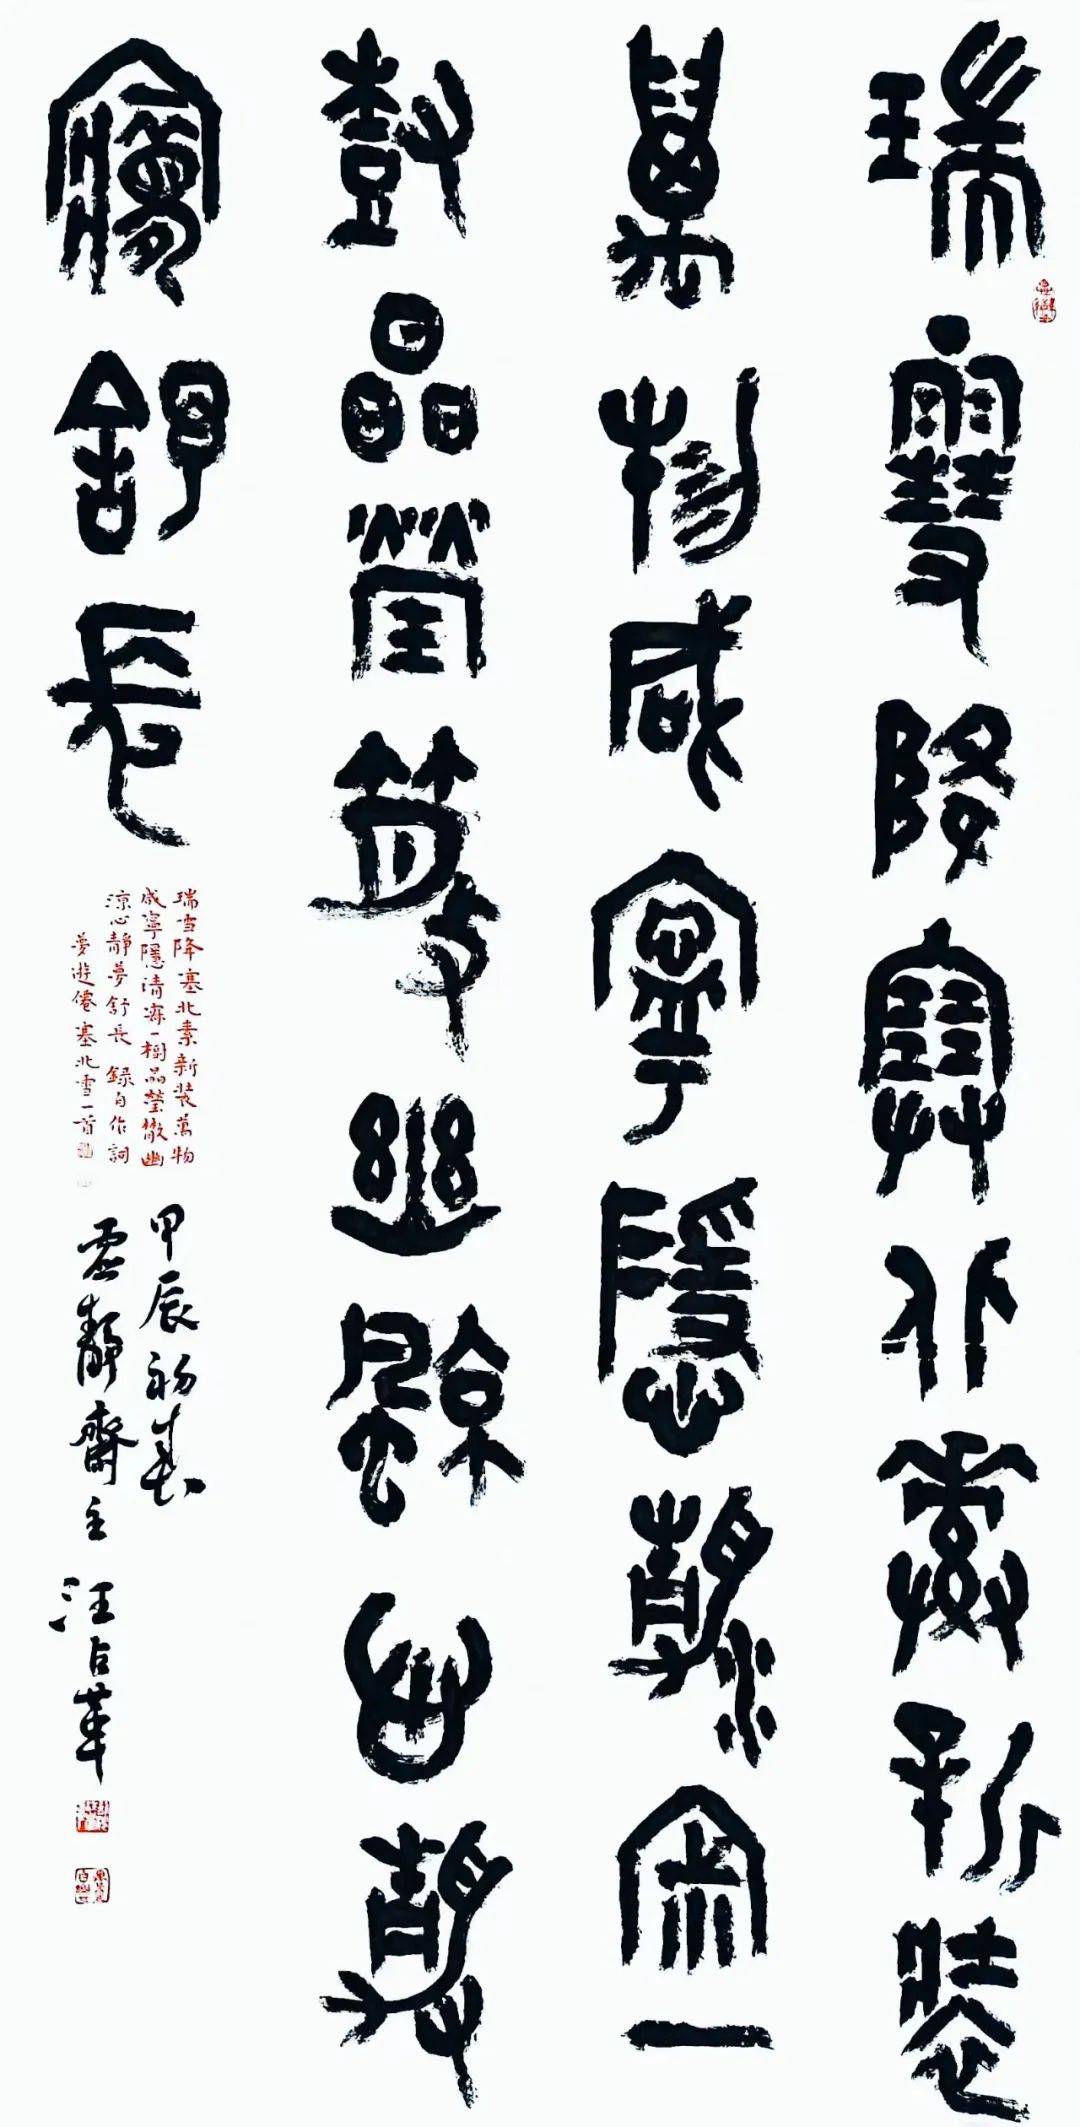 瑞雪降塞北素新裝
萬物咸寧隱清寂一
樹晶瑩幽涼心靜
夢舒長
瑞雪降塞北素新裝萬物
咸寧隱清寂一樹晶瑩幽
涼心靜夢舒長 錄自作詞
夢遊僊塞北雪一首
甲辰初春
虛靜齋主 汪占革